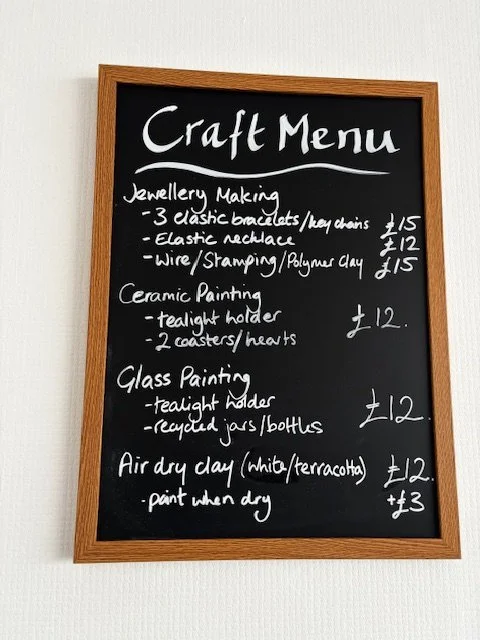 Craft Menu
Jewellery Making
- 3 elastic bracelets/key chains £15
- Elastic necklace £12
- Wire/Stamping/Polymer Clay £15
Ceramic Painting
- tealight holder £12.
- 2 coasters/hearts
Glass Painting
- tealight holder £12.
- recycled jars/bottles
Air dry clay (white/terracotta) £12.
- paint when dry +£3